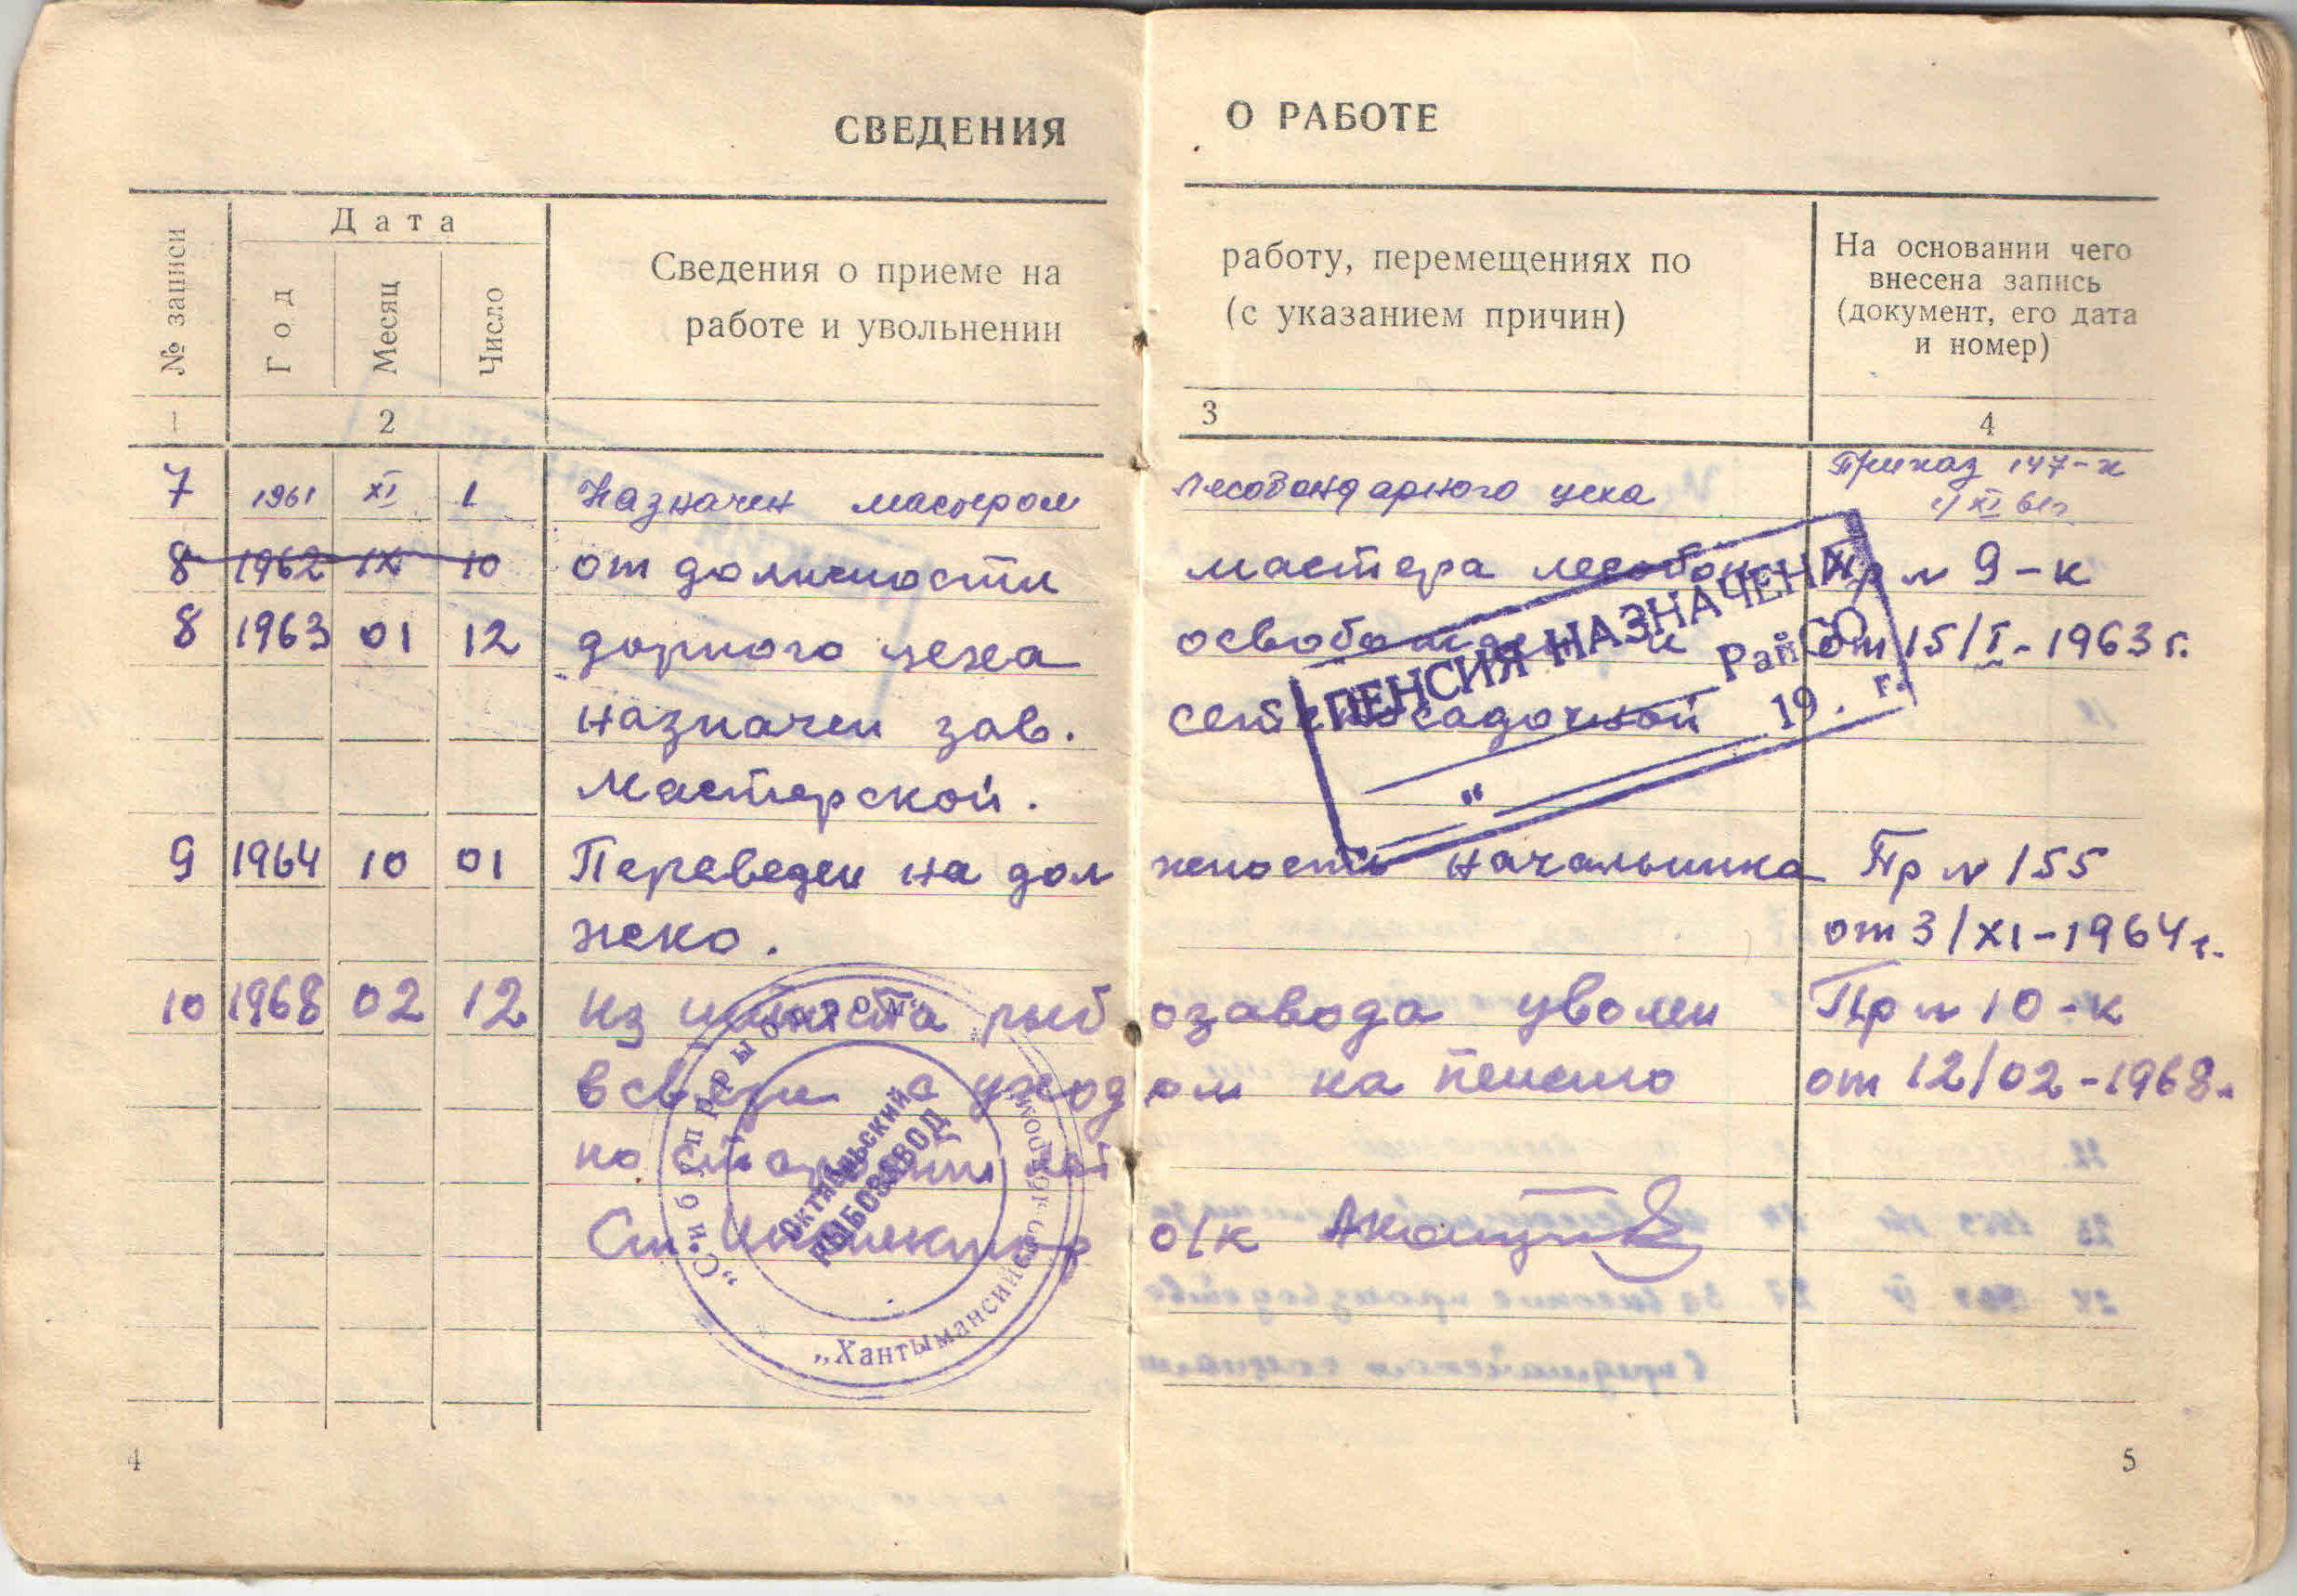 СВЕДЕНИЯ О РАБОТЕ
№ записи
Дата
Год
Месяц
Число
Сведения о приеме на работу, перемещениях по
работе и увольнении (с указанием причин)
На основании чего
внесена запись
(документ, его дата
и номер)
1 2 3 4
7 1961 XI 1 Назначен мастером лесобондарного цеха Приказ 147-к
1/XI 61г.
8 1962 IX 10 от должности мастера лесобон Пр № 9-к
8 1963 01 12 дарного цеха освобожден и от 15/I-1963 г.
назначен зав. сетепосадочной
мастерской.
9 1964 10 01 Переведен на дол жность начальника Пр № 155
от 3/XI-1964 г.
10 1968 02 12 Из штата рыб озавода уволен Пр № 10-к
в связи с уход ом на пенсию от 12/02-1968.
по старости лет
Ст. Инспектор о/к
ПЕНСИЯ НАЗНАЧЕНА
РайСО
" 19 . г.
„Сибирьпром
„Хантымансийский
ОКТЯБРЬСКИЙ
РЫБОЗАВОД
4
5